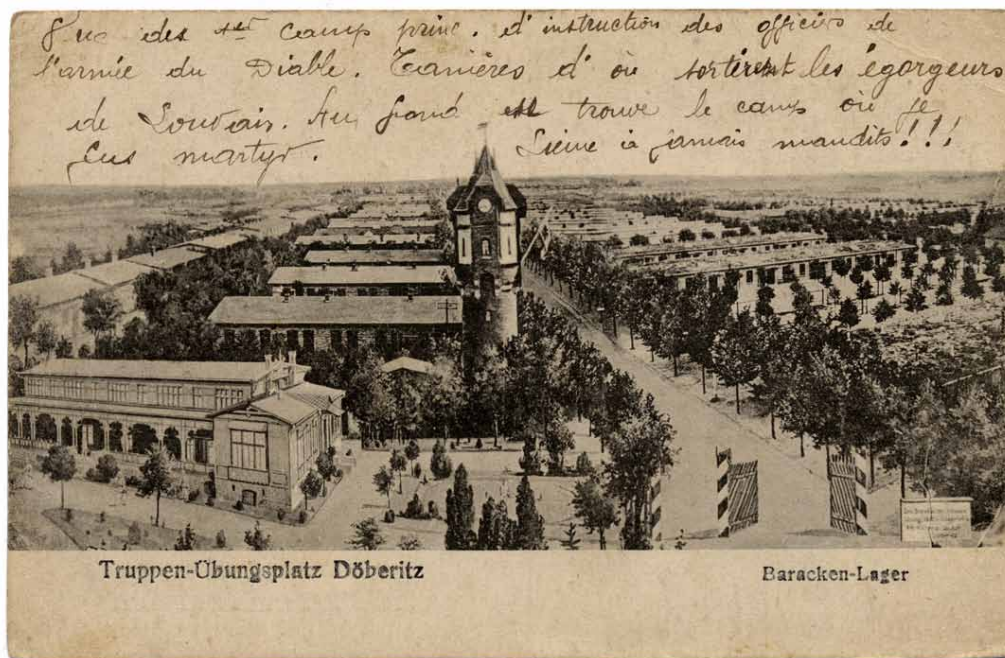 Vue des camp princ. d'instruction des officiers de
l'armée du Diable. Tanières d'où sortirent les égorgeurs
de Louvain. Au fond se trouve le camp où je
fus martyr. à jamais maudits!!!
Truppen-Übungsplatz Döberitz
Baracken-Lager